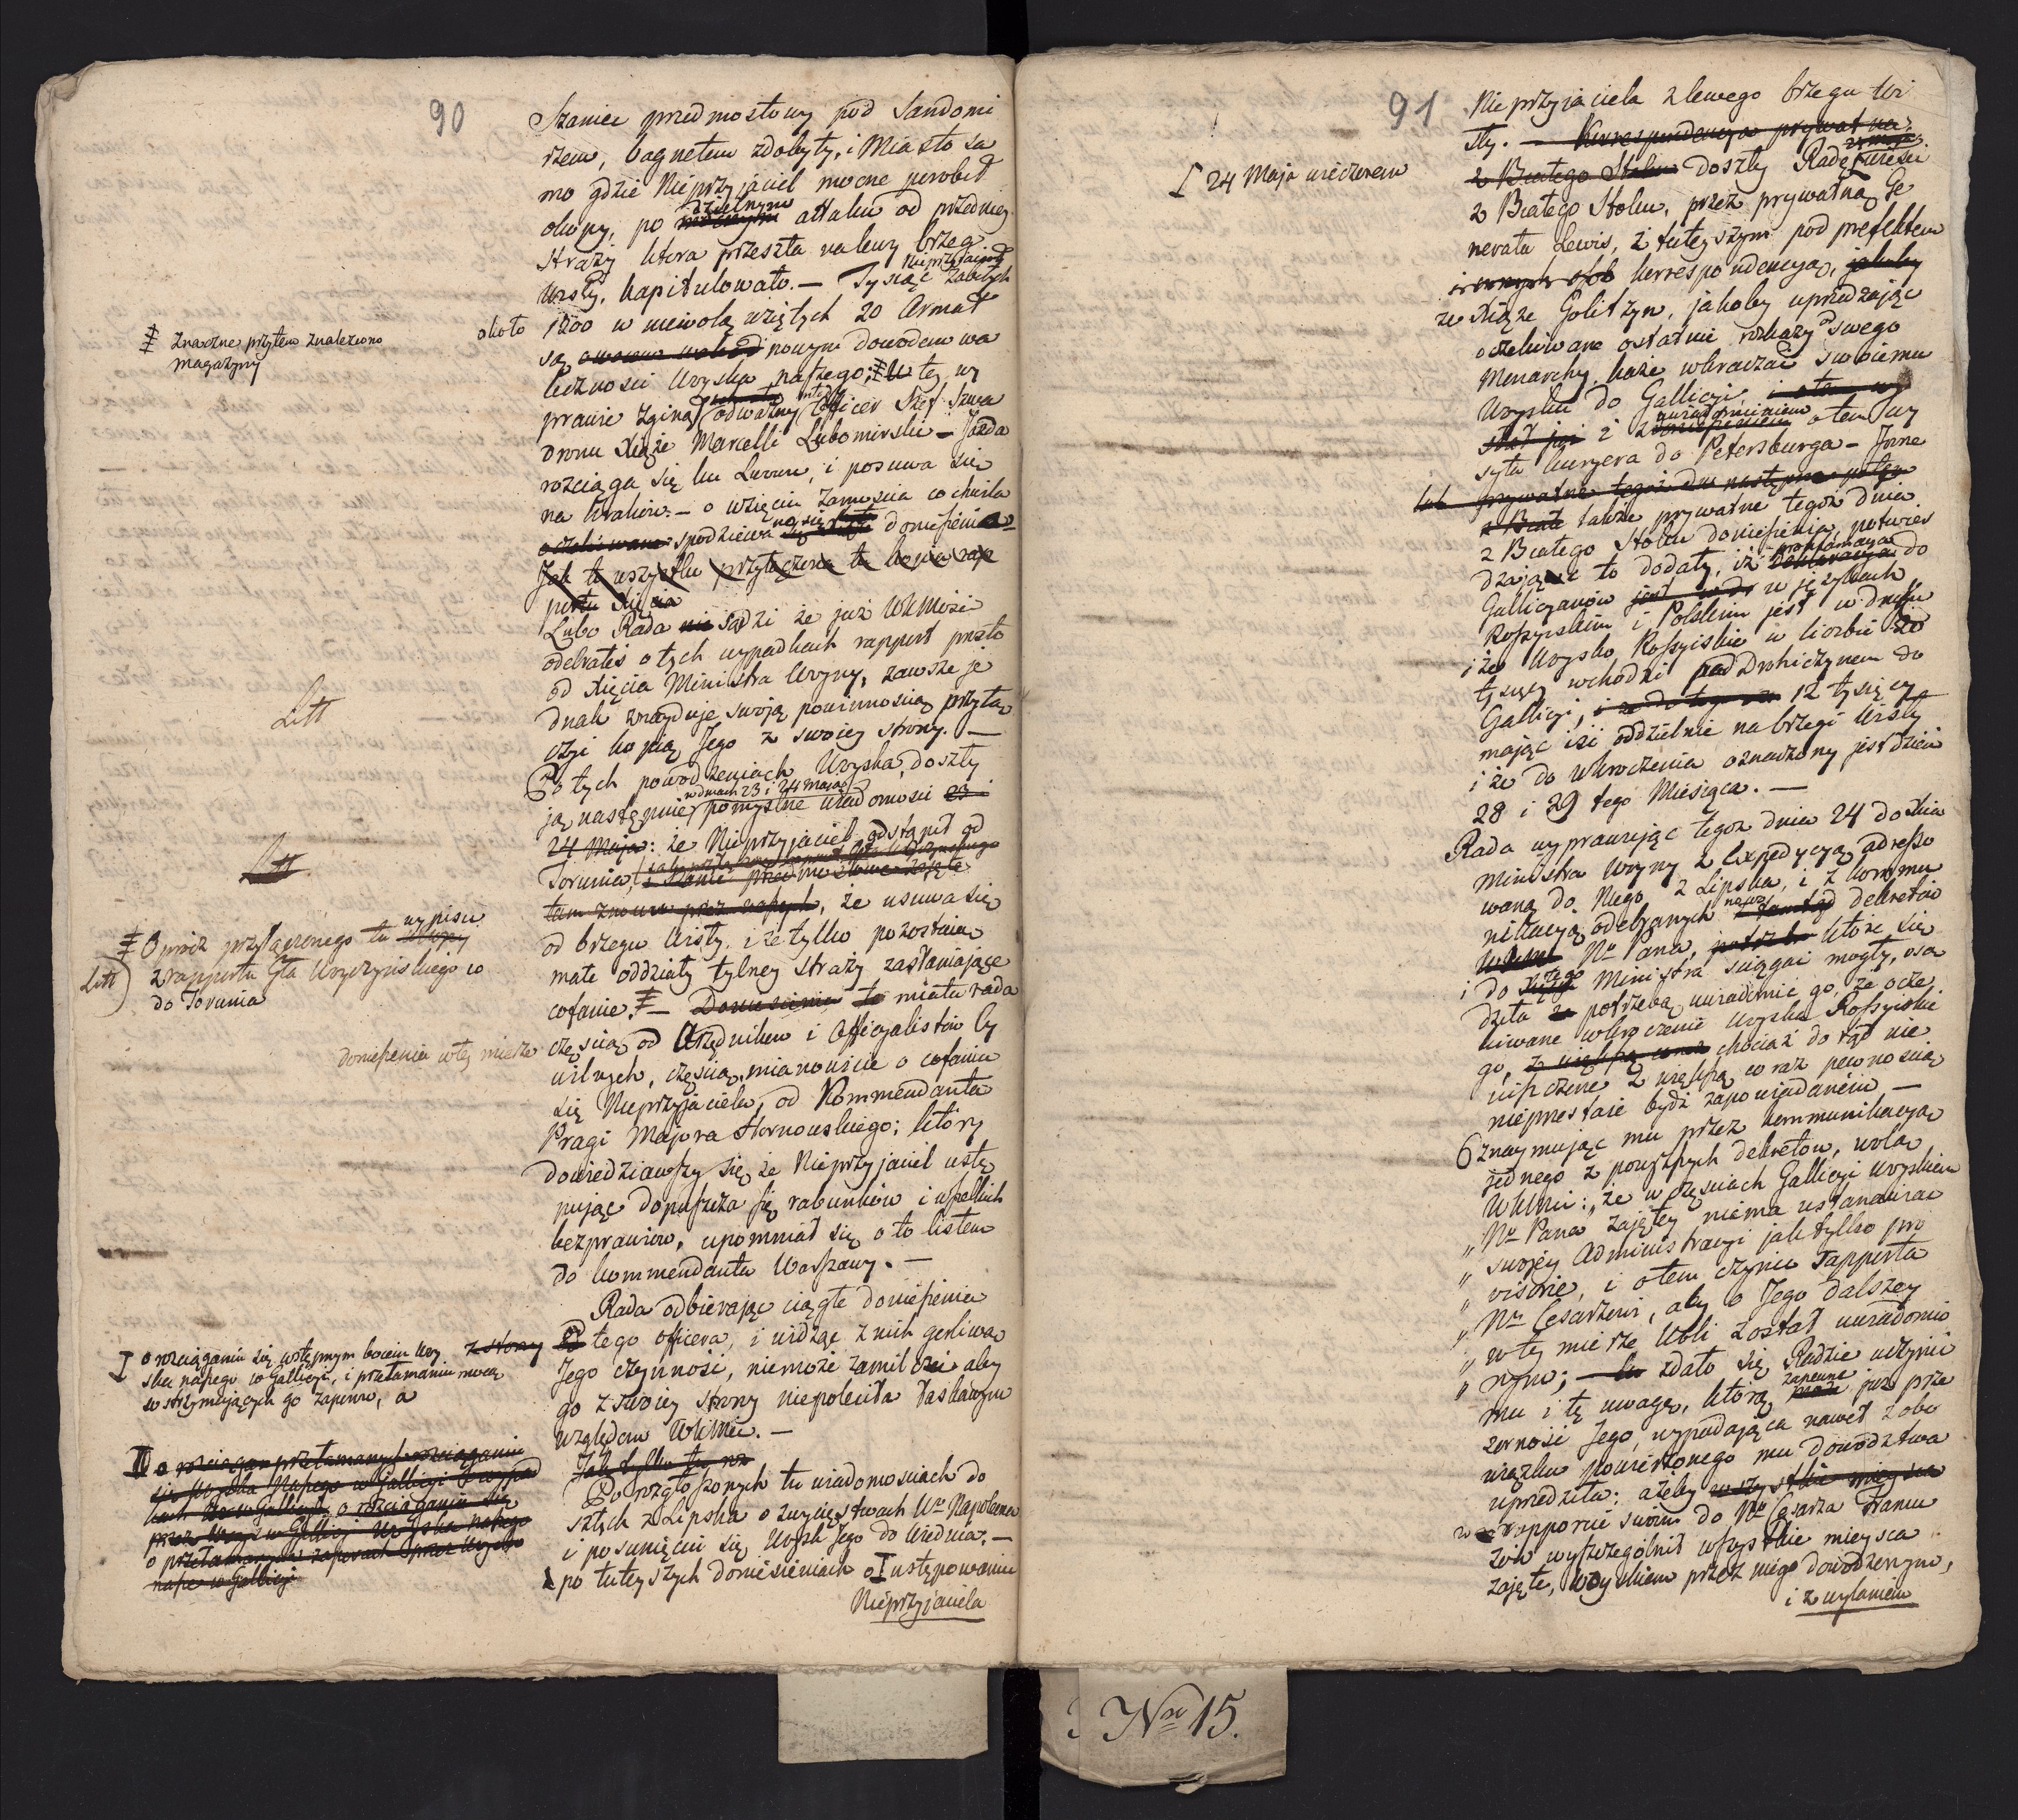 90
Szaniec przedmostowy pod Sandomi
rzem, bagnetem zdobyty, i Miasto sa
mo gdzie Nieprzyjaciel mocne porobił
okopy, po dzielnym attaku od przedniey
Straży ktora przeszła na lewy brzeg
Wisły, kapitulowało. — Tysiąc Nieprzyjaciół zabitych
około 1200 w niewolą wziętych 20 Armat
są nowym dowodem wa
leczności Woyska naszego; W tey wy
prawie zginął odważny Officer Szef Szwa
dronu Xiąże Marcelli Lubomirski — Jazda
rozciąga się ku Lwowu, i posuwa się
na Kraków. — o wzięciu Zamościa co chwila
spodziewa się doniesienia
Jak to wszystko przyłączona tu kopia rap
portu Xięcia
Lubo Rada sądzi że już WKMość
odebrałeś o tych wypadkach rapport prosto
od Xięcia Ministra Woyny, zawsze je
dnak znayduje swoją powinnością przyłą
czyć kopią Jego z swoiey strony. —
Po tych powodzeniach Woyska, doszły
ją następnie w dniach 23 i 24 Maja pomyślne wiadomości
24 Maja: że Nieprzyjaciel odstąpił od
Torunia,
tam znowu przez naszych, że usuwa się
od brzegu Wisły, i że tylko pozostają
małe oddziały tylney straży zasłaniające
cofanie. — Doniesienia te miała rada
częścią od Urzędników i Officyalistów Cy
wilnych, częścią mianowicie o cofaniu
się Nieprzyjaciela, od Kommendanta
Pragi Majora Hornowskiego; który
dowiedziawszy się że Nieprzyjaciel ustę
pując dopuszcza się rabunków i wszelkich
bezprawiów, upomniał się o to listem
do kommendanta Warszawy. —
Rada odbierając ciągłe doniesienia
od tego officera, i widząc z nich gorliwą
Jego czynność, niemoże zamilczeć aby
go z swoiey strony niepoleciła łaskawym
względom WKMci. —
Jak tylko tu
Po rozgłoszonych tu wiadomościach do
szłych z Lipska o zwycięstwach Wo Napoleona
i posunięciu się Woysk Jego do Wiednia, —
po tuteyszych doniesieniach o ustępowaniu
Nieprzyjaciela
znaczne przytem znaleziono
magazyny
Litt
Litt
Oprócz przyłączonego tu wypisu
Litt) z rapportu Gła Woyczyńskiego co
do Torunia
doniesienia w tey mierze
o rozciąganiu się wstępnym boiem Woy
ska naszego w Gallicyi, i przełamaniu mocą
wstrzymujących go zaporów, a
z strony
nasze w Gallicyi
91
24 Maja wieczorem
Nieprzyjaciela z lewego brzegu Wi
sły. — Korrespondencya prywatna
z Białego Stoku doszły Radę wieści
z Białego Stoku, przez prywatną Ge
nerała Lewis, z tuteyszym pod prefektem
korrespondencyą, jakoby
że Xiąże Golitzyn, jakoby uprzedzając
oczekiwane ostatnie rozkazy od swego
Monarchy, każe wkraczać swoiemu
Woysku do Gallicyi,
i z uwiadomieniem o tem wy
syła kuryera do Petersburga — Inne
prywatne tegoż dnia następne
także prywatne tegoż dnia
z Białego Stoku doniesienia, potwier
dzając to dodały, iż proklamacya do
Gallicyanów w językach
Rossyiskim i Polskim jest w druku
i że Woysko Rossyiskie w liczbie 20
tysięcy wchodzi pod Drohiczynem do
Gallicyi, 12 tysięcy
mając iść oddzielnie na brzegi Wisły
i że do wkroczenia oznaczony jest dzień
28 i 29 tego Miesiąca. —
Rada wyprawując tegoż dnia 24 do Xcia
Ministra Woyny z Expedycyą adresso
waną do Niego z Lipska, i z kommu
nikacyą odebranych dekretów
No Pana, które się
i do tego Ministra ściągać mogły, osą
dziła potrzebą uwiadomić go, że ocze
kiwane wkroczenie Woyska Rossyiskie
go, chociaż dotąd nie
niszczone z większą coraz pewnością
nieprzestaie bydź zapowiadanem —
Oznaymując mu przez kommunikacyą
jednego z powyższych dekretów, wolą
WKMci: „że w częściach Gallicyi woyskiem
„ No Pana zajętey niema ustanawiać
„ swojéy Administracyi jak tylko pro
„ wizorie, i o tem czynić rapporta
„ No Cesarzowi, aby o Jego dalszey
„ w tey mierze Woli został uwiadomio
„ nym; — zdało się Radzie uczynić
mu i tę uwagę, którą zapewne już prze
zorność Jego, wypadającą nawet z obo
wiązku powierzonego mu dowództwa
uprzedziła: ażeby wszystkie mieysca
w rapporcie swoim do No Cesarza Francu
zów wyszczególnił wszystkie mieysca
zajęte, Woyskiem przez niego dowodzonym,
i z wysłaniem
No 15.